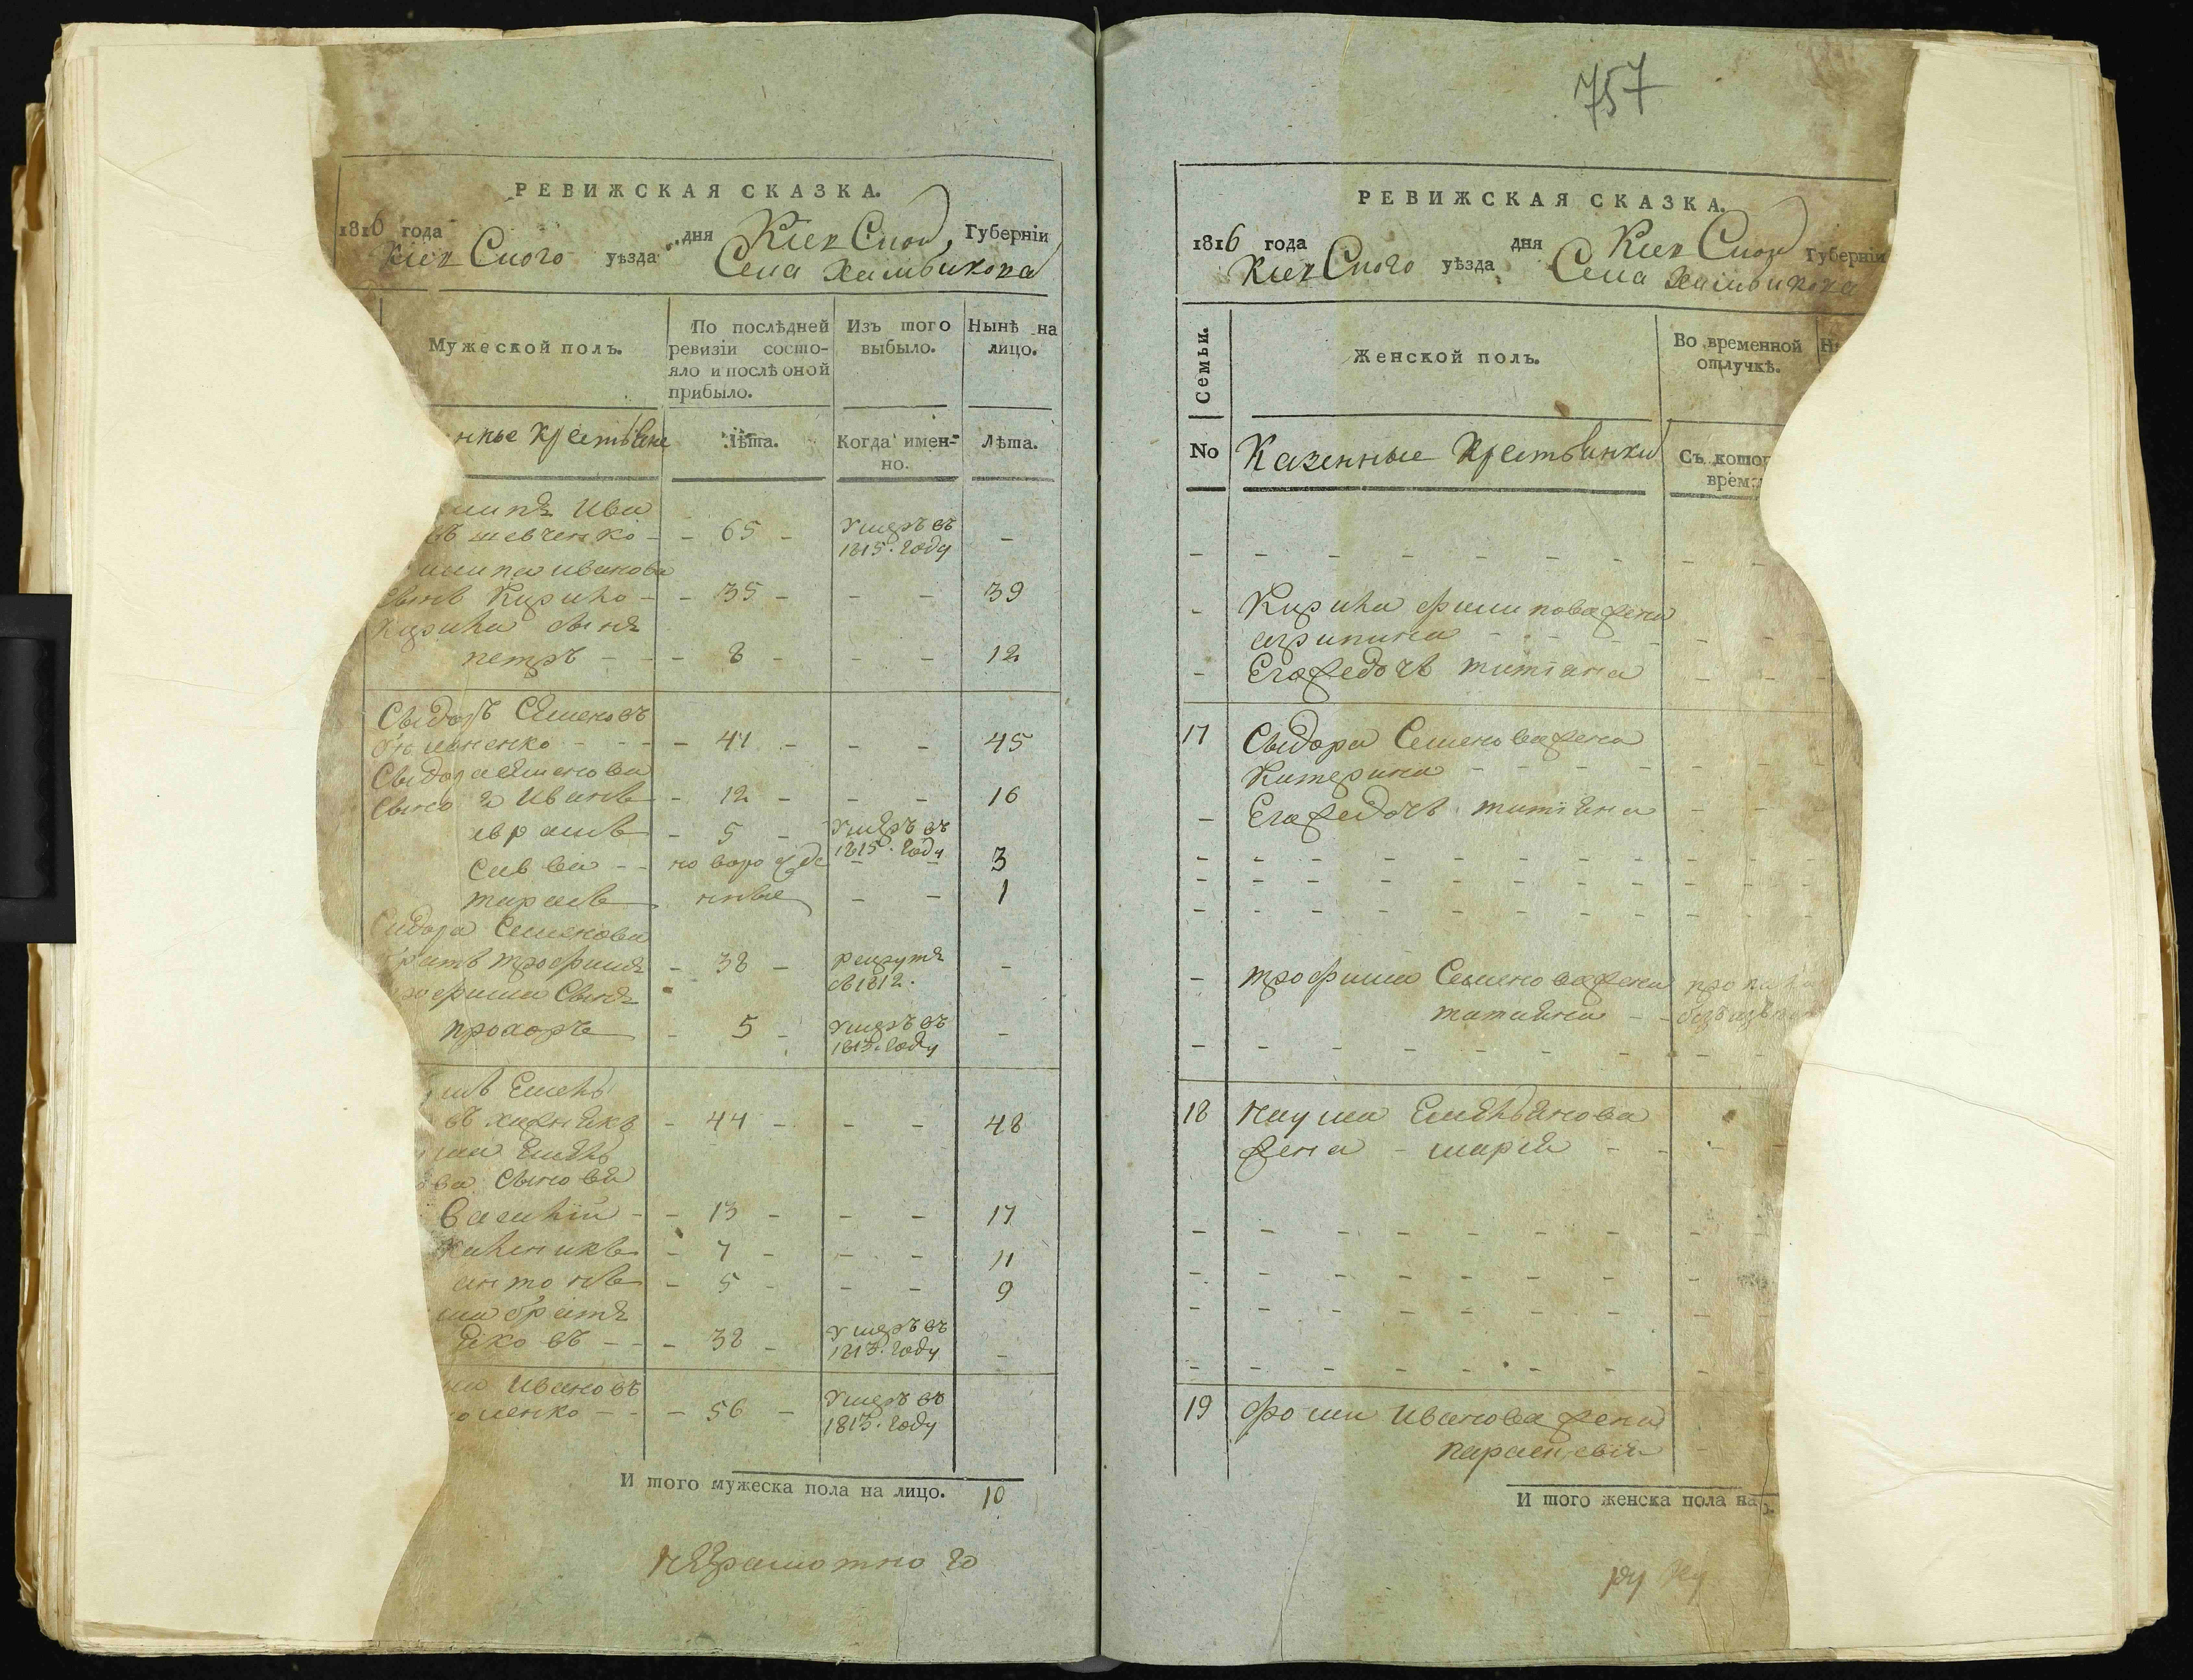 РЕВИЖСКАЯ СКАЗКА.
1816 года дня Кіевской Губерніи
Кіевского уѣзда Села
Мужеской полъ.
По послѣдней ревизіи состо-
яло и послѣ оной прибыло.
Изъ того выбыло.
Нынѣ на лицо.
нные крестьяне Лѣта. Когда имен-
но. Лѣта.
Ива
шевченко - - 65 - умеръ въ 1815. году -
липа иванова
сынъ Кирило - - 35 - - - 39
Кирила сынъ
петръ - - - 8 - - - 12
Сыдоръ Семеновъ
- - - 41 - - - 45
Сыдора Семенова
Сыно Иванъ - 12 - - - 16
аврамъ - 5 - умеръ въ 1815. году
Савва - - новорожде - - 3
тарасъ нные - - 1
Сидора Семенова
братъ трофимъ - 38 - рекрутъ
въ 1812. -
рофима Сынъ
прохоръ - 5 - умеръ въ 1813. году -
мъ Емель
въ - 44 - - - 48
ма Емель
ва Сыновья
Василій - - 13 - - - 17
Каленикъ - 7 - - - 11
антонъ - 5 - - - 9
ма братъ
Яковъ - - - 38 - умеръ въ 1813. году -
ма Ивановъ
менко - - - 56 - умеръ въ 1813. году
И того мужеска пола на лицо. 10
неграмотно го
757
РЕВИЖСКАЯ СКАЗКА.
1816 года дня Кіевской Губерніи
Кіевского уѣзда Села
Семьи.
Женской полъ.
Во временной
отлучкѣ.
Н
No Казенные крестьянки Съ котор
врем
- Кирила филипова жена
агрипина - - -
- Его дочь татіана - - -
17 Сыдора Семенова жена
Катерина - - - - -
- Его дочь татіяна - -
- трофима Семенова жена пропала
татіяна - - безъ
18 наума Емельянова
жена - марія - -
19 фомы Иванова жена
параскевія
И того женска пола на
ру